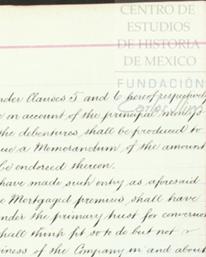 CENTRO DE
ESTUDIOS
DE HISTORIA
DE MEXICO
FUNDACIÓN
Carlos Slim
nder Clauses 5 and 6 hereof respectively
on account of the principal moneys
the debentures, shall be produced to
a Memorandum, of the amount
be endorsed thereon.
have made such entry as aforesaid
Mortgaged premises, shall have
nder the primary trust for conversion
shall think fit so to do but not
iness of the Company in and about